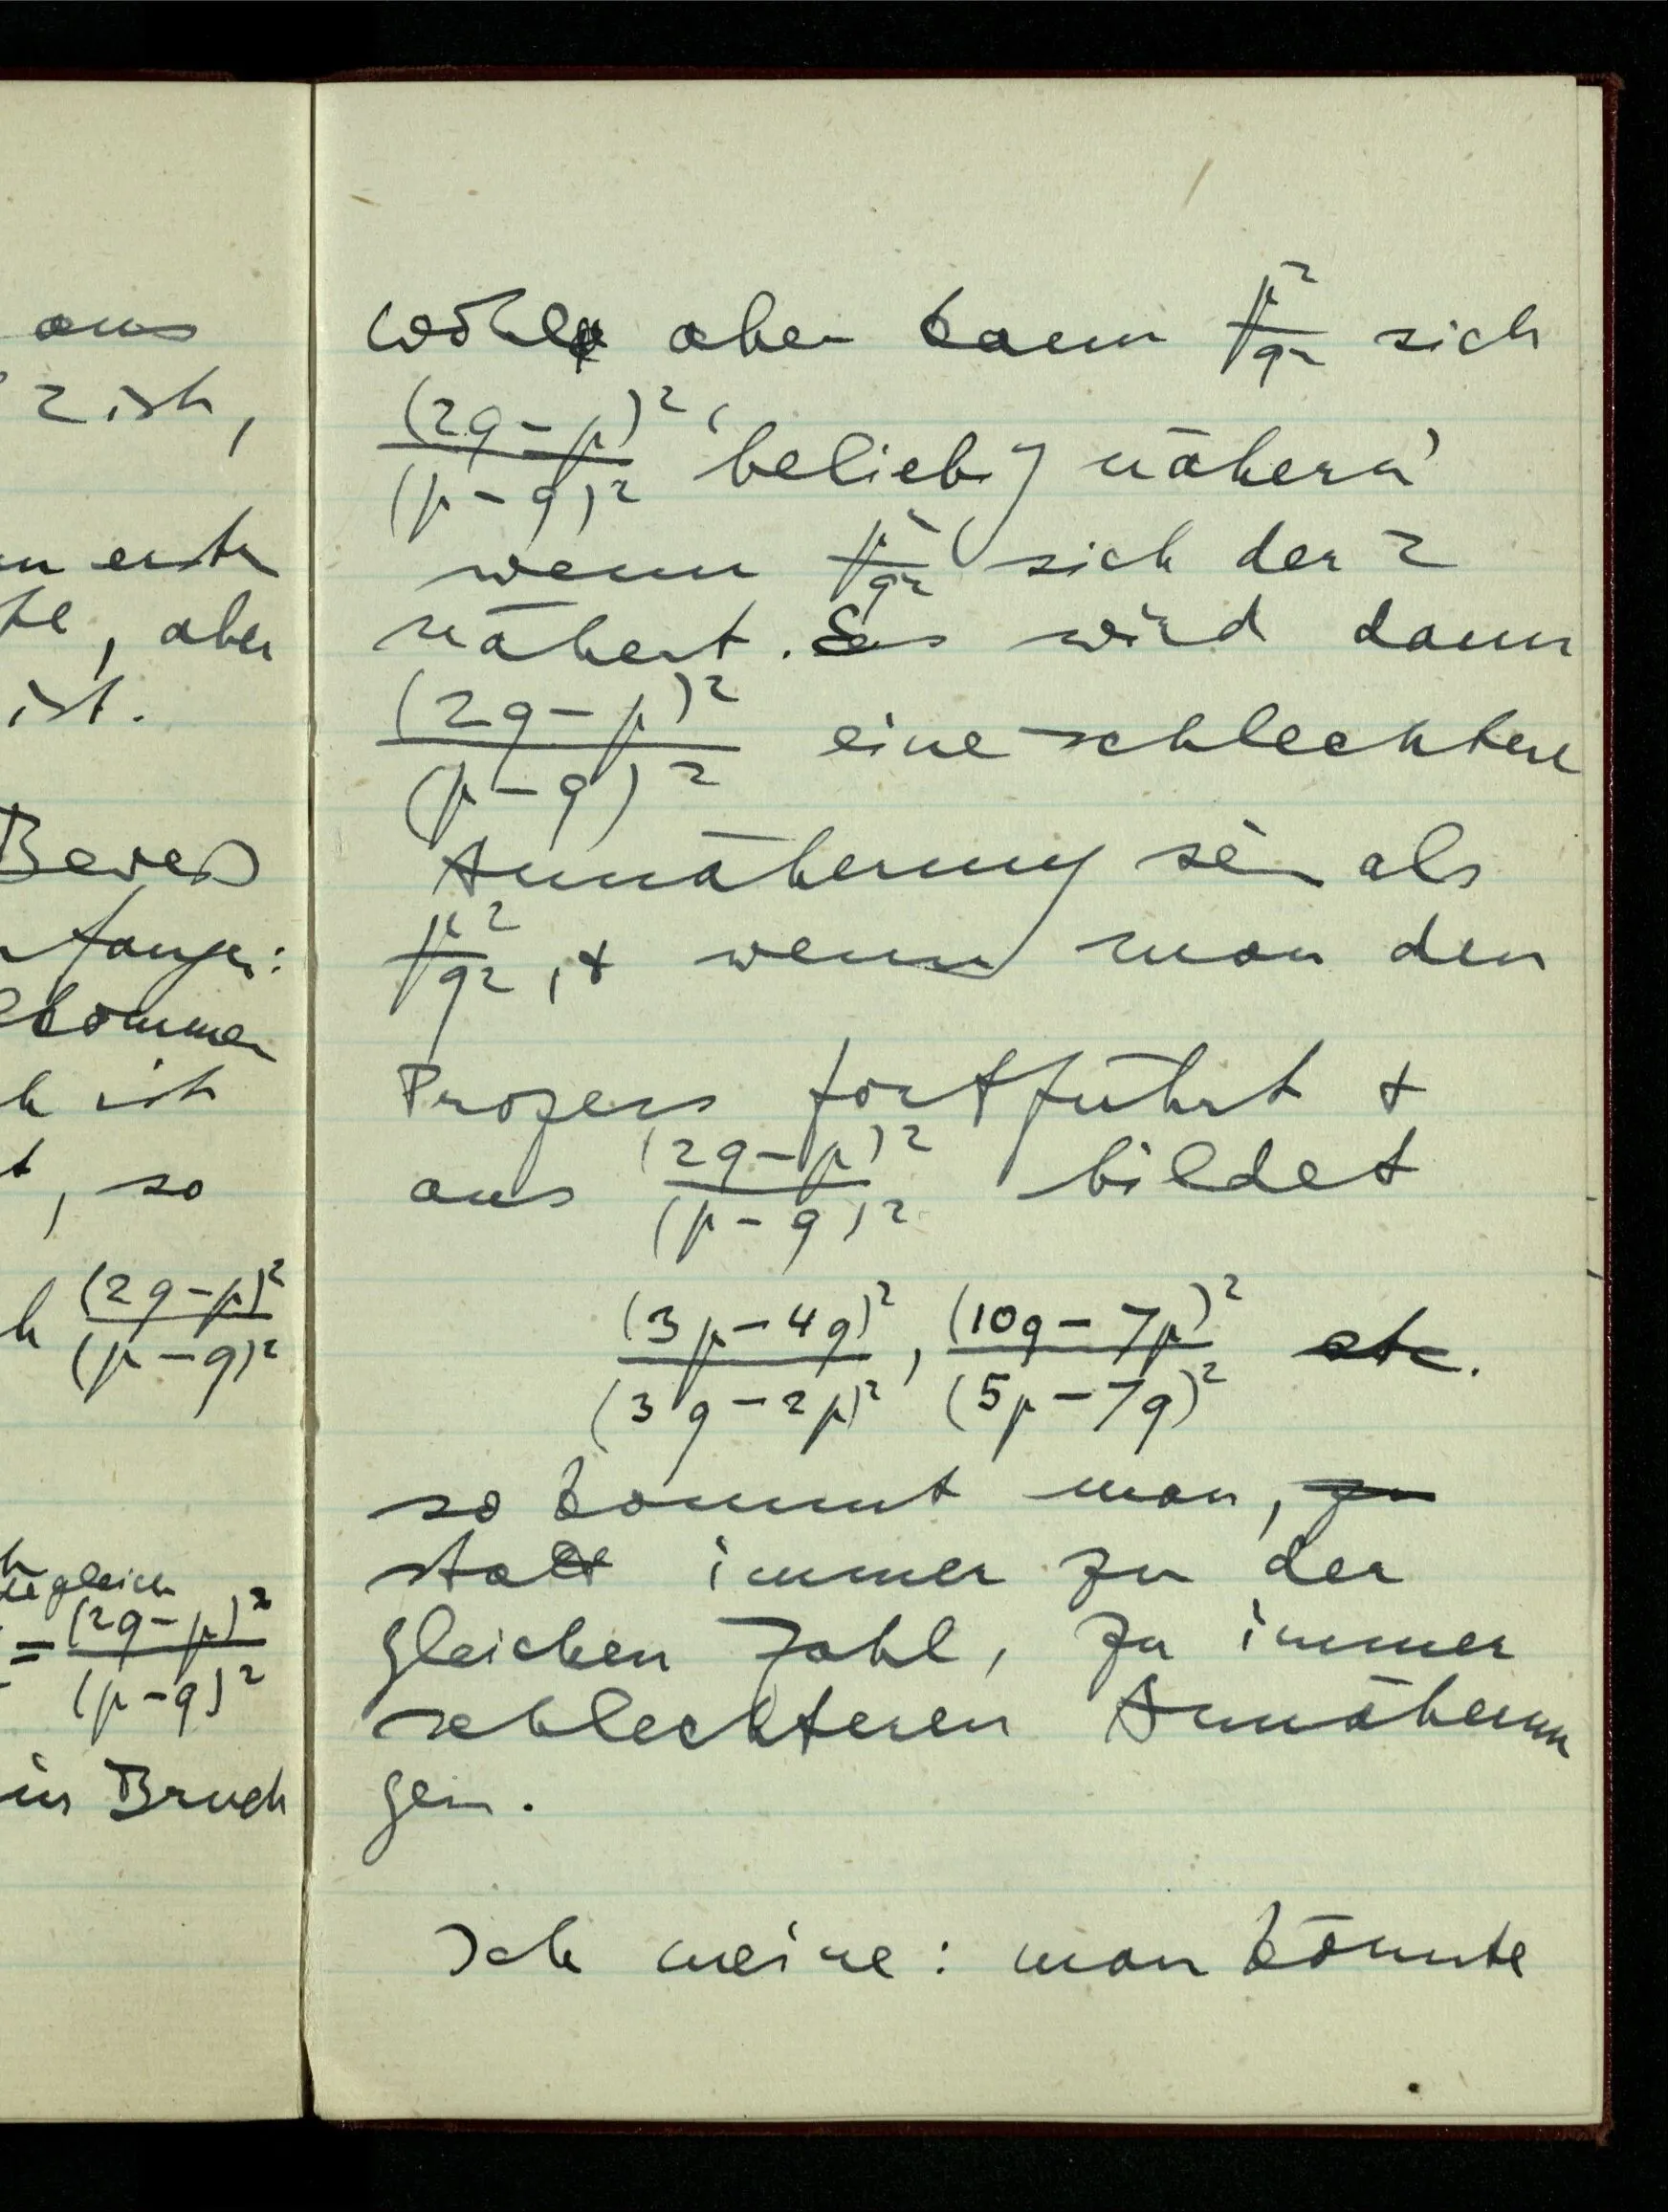 aus
2 ist,
erste
, aber
ist.
Beweis
kommen
ist
, so
(2q-p)²/(p-q)²
gleich
= (2q-p)²/(p-q)²
Bruch
Wohl aber kann p²/q² sich
(2q-p)²/(p-q)² 'beliebig nähern'
wenn p²/q² sich der 2
nähert. Es wird dann
(2q-p)²/(p-q)² eine schlechtere
Annäherung sein als
p²/q², & wenn man den
Prozess fortführt &
aus (2q-p)²/(p-q)² bildet
(3p-4q)²/(3q-2p)², (10q-7p)²/(5p-7q)² etc.
so kommt man, zu
statt immer zu der
gleichen Zahl, zu immer
schlechteren Annäherun
gen.
Ich meine: man könnte